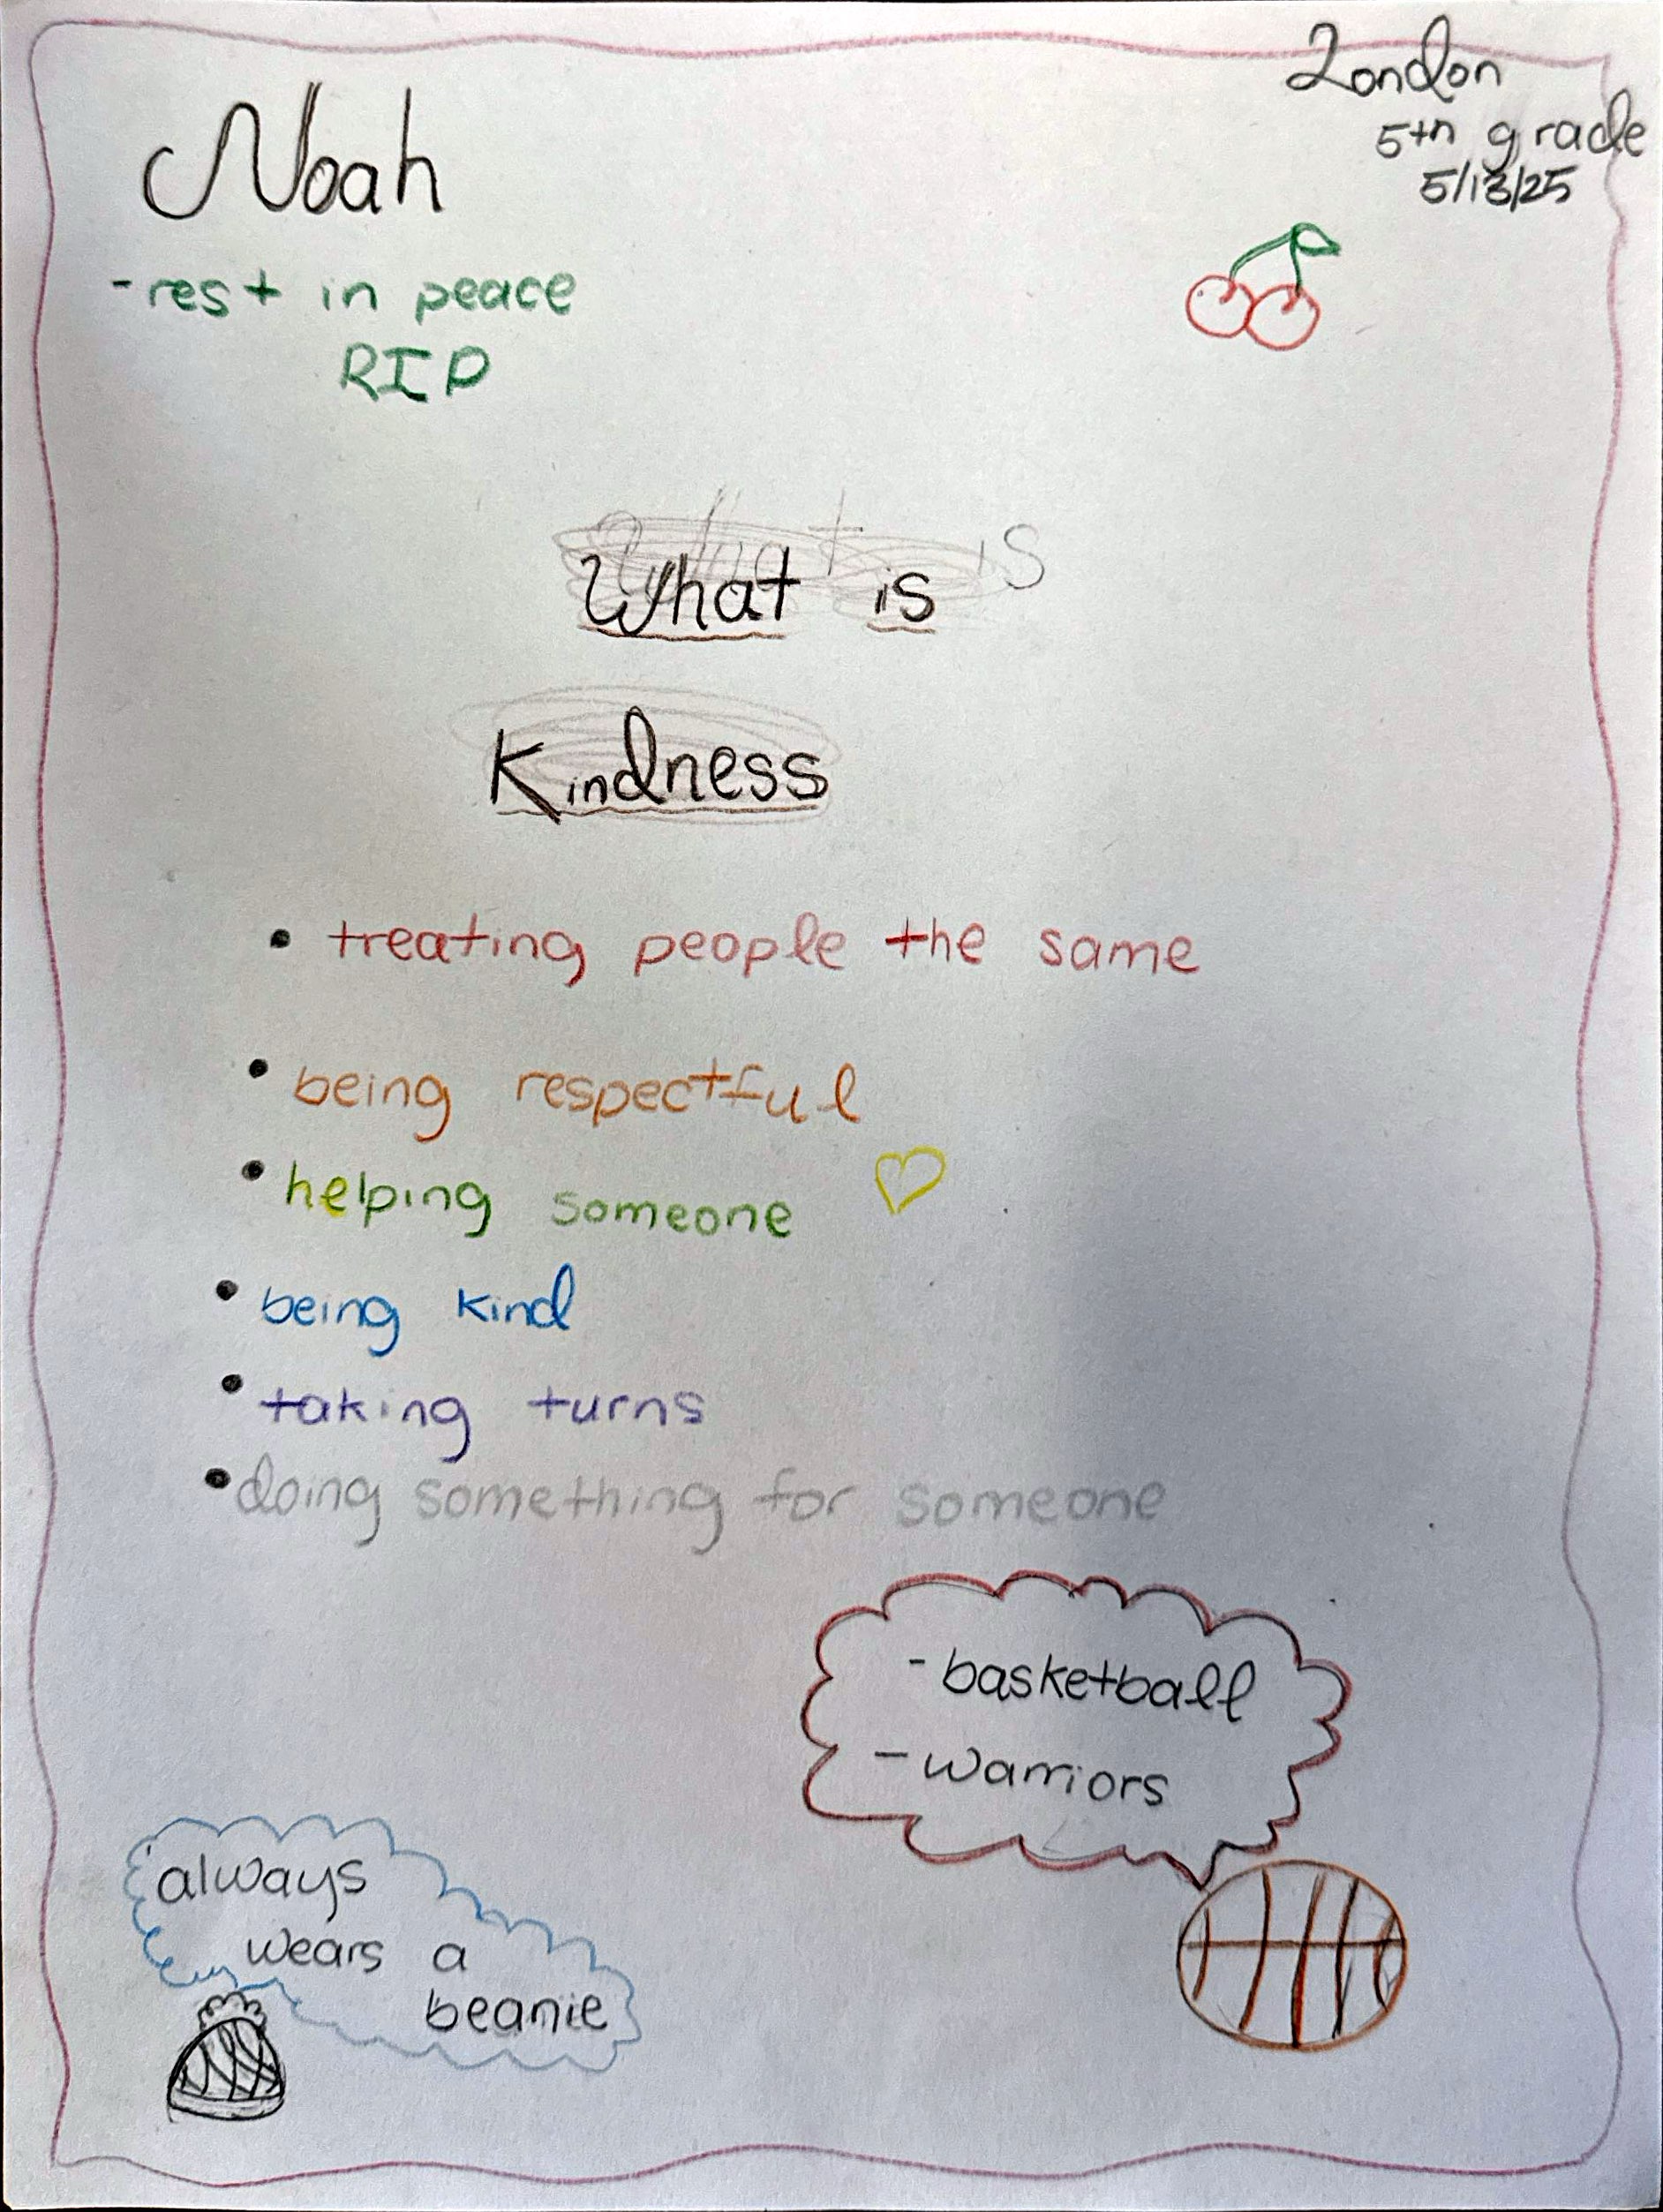 London
5th grade
5/13/25
Noah
- rest in peace
RIP
What is
What is
Kindness
• treating people the same
• being respectful
• helping someone
• being kind
• taking turns
• doing something for someone
- basketball
- warriors
always
wears a
beanie